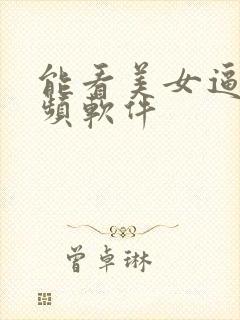 能看美女逼
頻軟件
曾卓琳